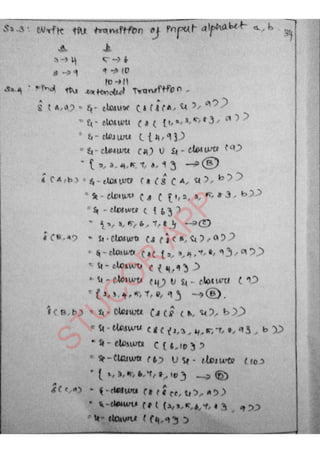 S2.3: Write the transition of input alphabet a, b. 34
a b
3→4 5→6
8→9 9→10
10→11
S2.4: Find the extended Transition.
δ̂(A,a) = ε-closure (δ(δ̂(A,ε),a))
= ε-closure (δ({1,2,3,5,8},a))
= ε-closure ({4,9})
= ε-closure (4) ∪ ε-closure (9)
= {2,3,4,5,7,8,9} → (B)
δ̂(A,b) = ε-closure (δ(δ̂(A,ε),b))
= ε-closure (δ({1,2,3,5,8},b))
= ε-closure ({6})
= {2,3,5,6,7,8} → (C)
δ̂(B,a) = ε-closure (δ(δ̂(B,ε),a))
= ε-closure (δ({2,3,4,5,7,8,9},a))
= ε-closure ({4,9})
= ε-closure (4) ∪ ε-closure (9)
= {2,3,4,5,7,8,9} → (B).
δ̂(B,b) = ε-closure (δ(δ̂(B,ε),b))
= ε-closure (δ({2,3,4,5,7,8,9},b))
= ε-closure ({6,10})
= ε-closure (6) ∪ ε-closure (10)
= {2,3,5,6,7,8,10} → (D)
δ̂(C,a) = ε-closure (δ(δ̂(C,ε),a))
= ε-closure (δ({2,3,5,6,7,8},a))
= ε-closure ({4,9})
STUCOR APP